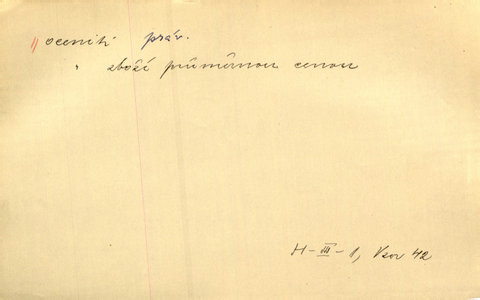 oceniti práv.
" zboží průměrnou cenou
H-III-1, Vzor 42